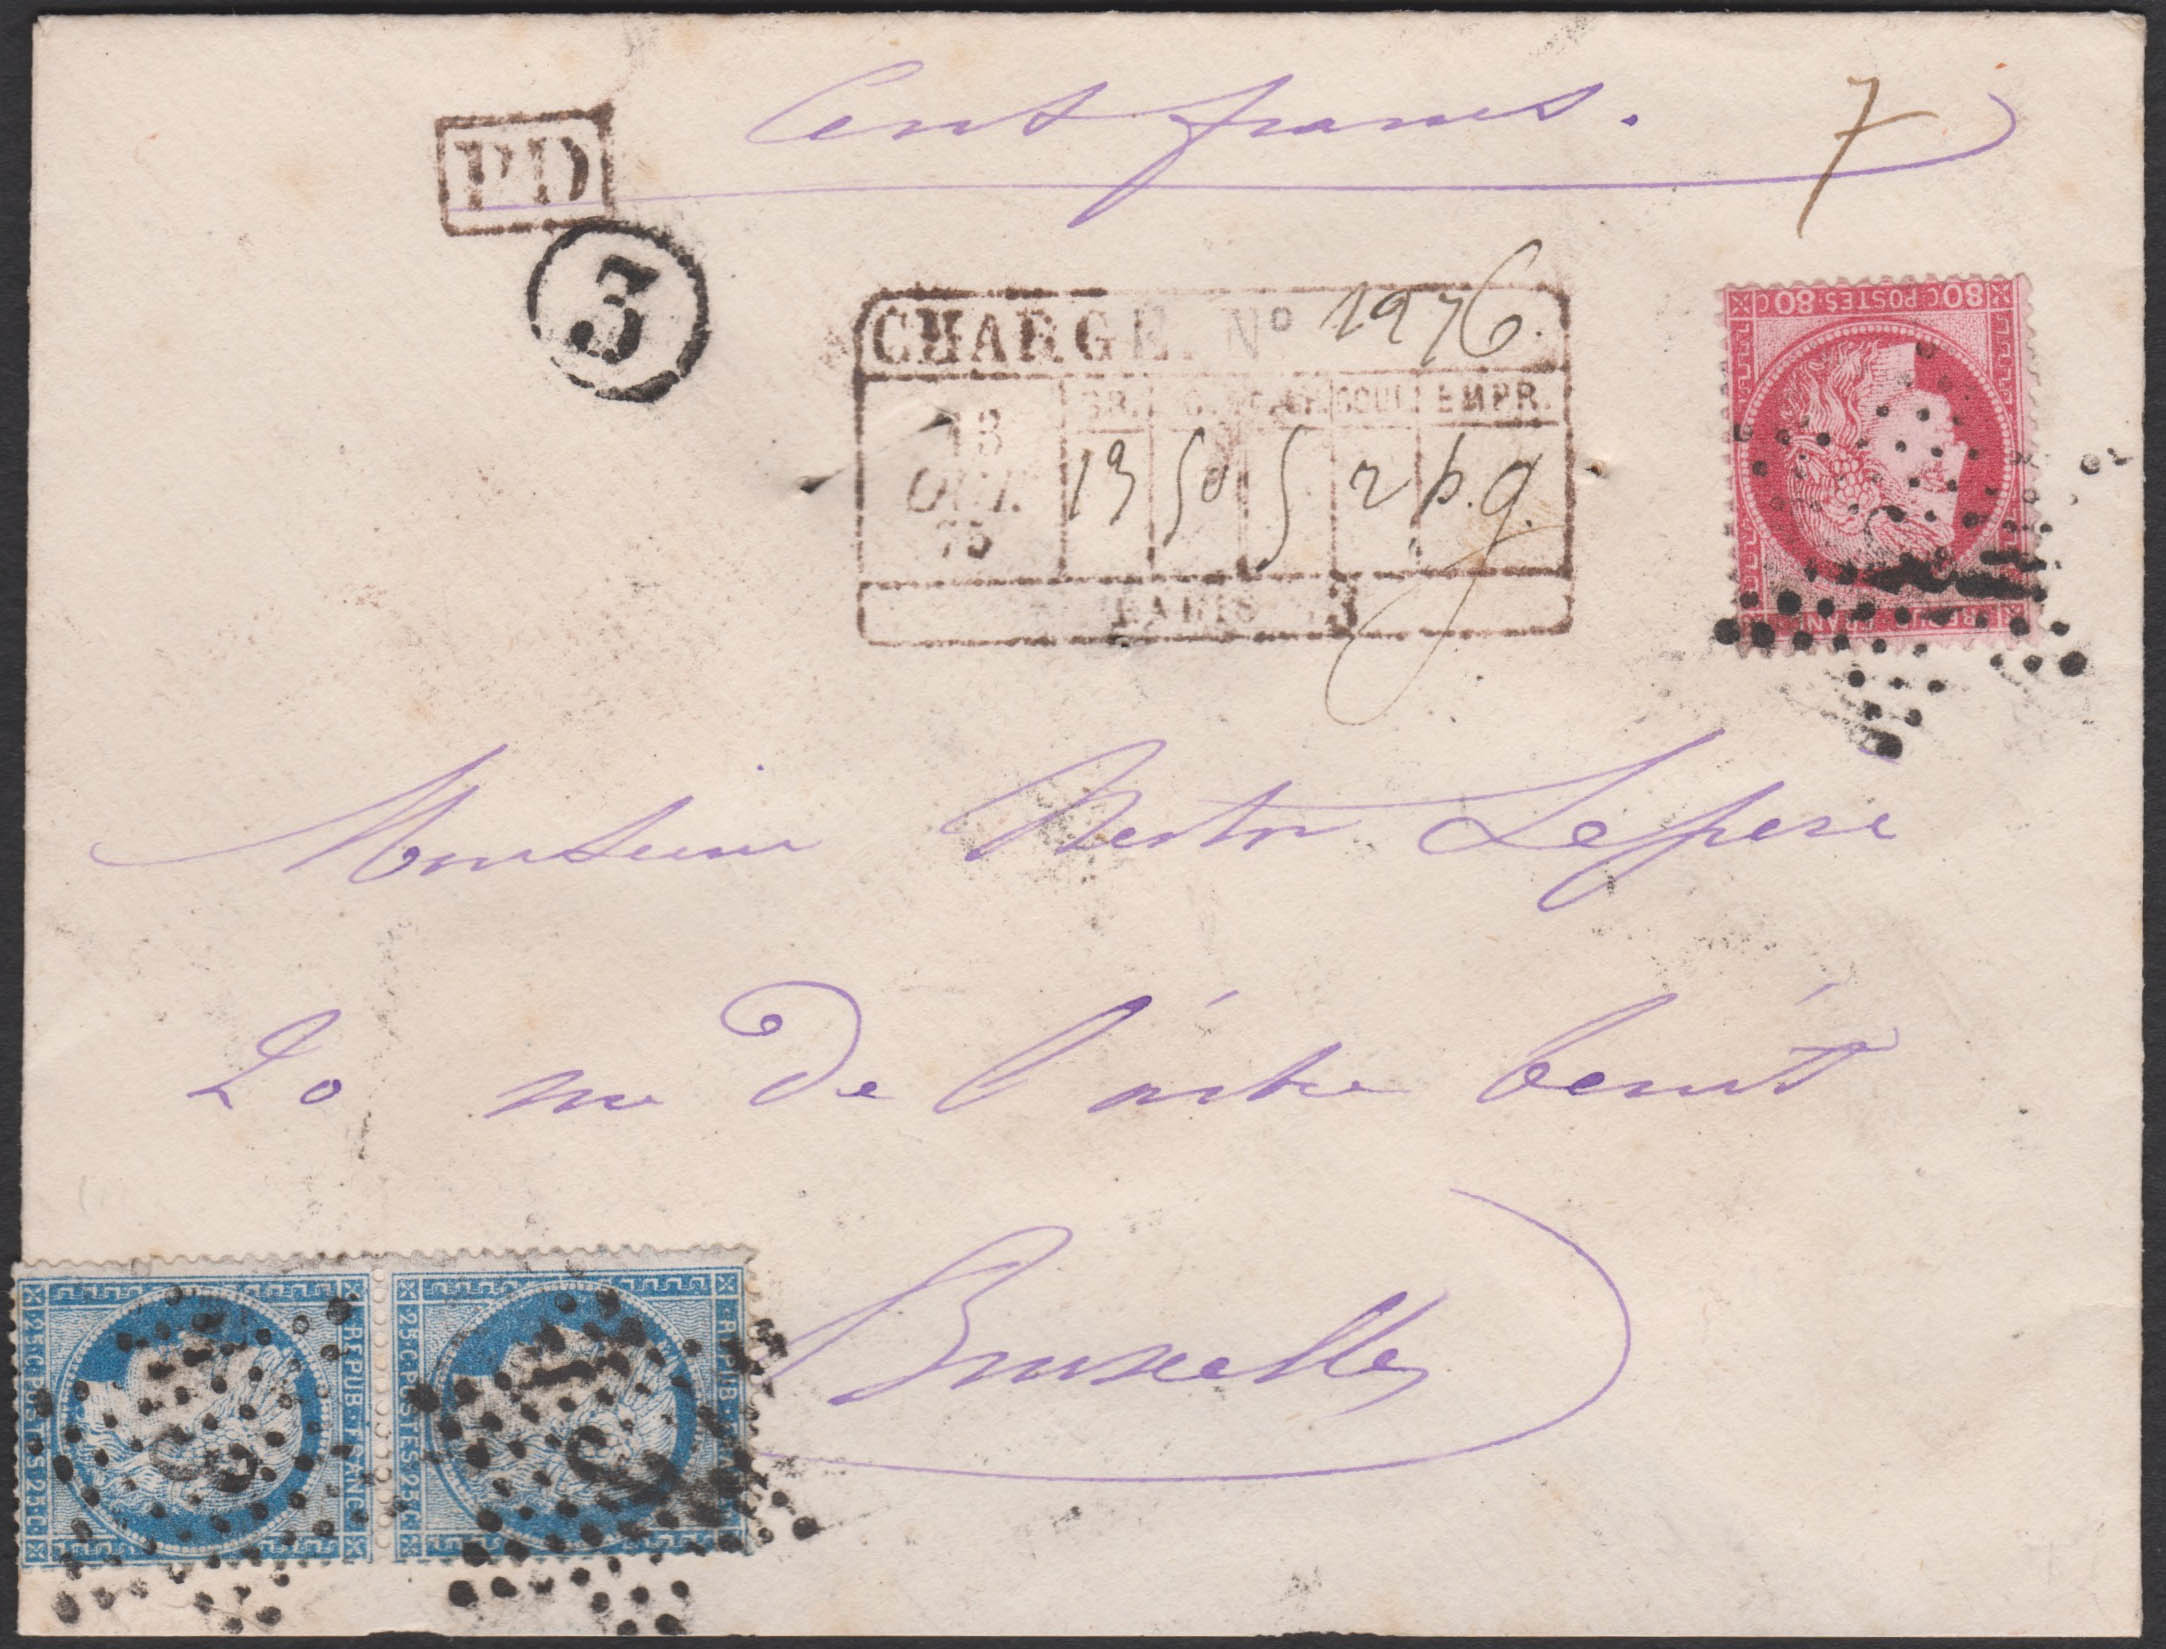 Cent francs.
7
P.D
3
CHARGÉ. Nº 1976.
GR. COUL EMPR.
13 50 5 2 p. g.
18
OCT.
75
PARIS
80 C POSTES 80 C
REPUB FRANC
Monsieur Nestor Lepere
20 rue de l'arbre benit
Bruxelles
25 C POSTES 25 C
REPUB FRANC
25 C POSTES 25 C
REPUB FRANC